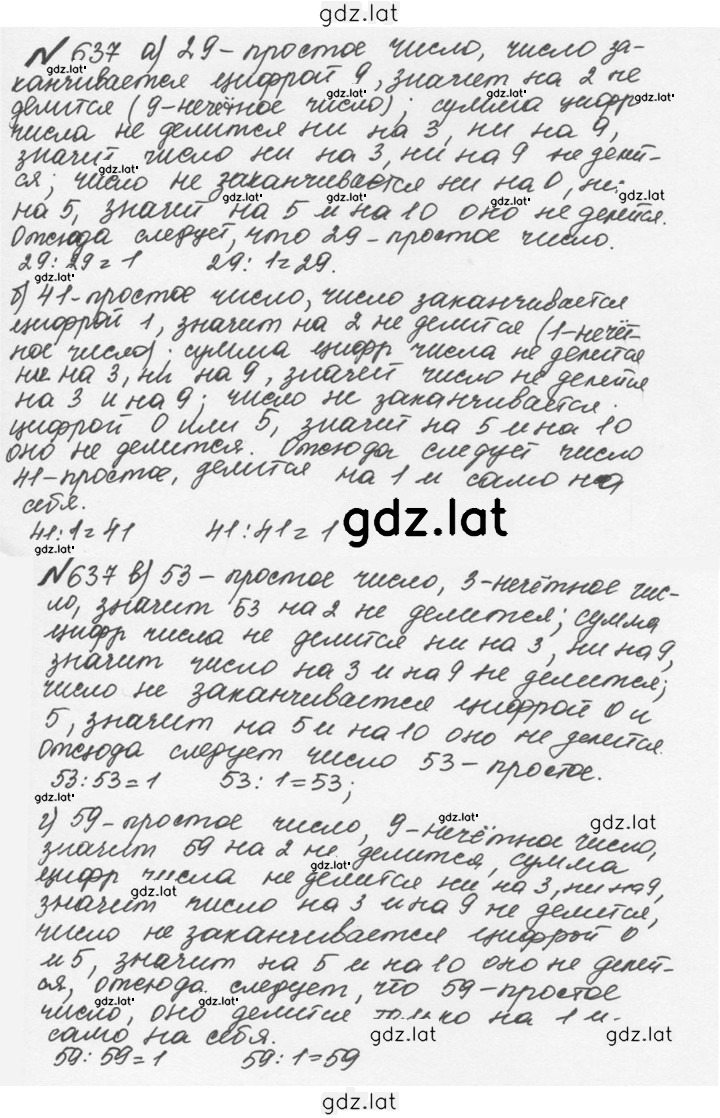 gdz.lat
№637 а) 29 – простое число, число за-
gdz.lat
канчивается цифрой 9, значит на 2 не
делится (9-нечётное число); сумма цифр
gdz.lat gdz.lat gdz.lat
числа не делится ни на 3, ни на 9,
значит число ни на 3, ни на 9 не делит-
gdz.lat
ся; число не заканчивается ни на 0, ни
gdz.lat gdz.lat gdz.lat gdz.lat
на 5, значит на 5 и на 10 оно не делится.
Отсюда следует, что 29 – простое число.
29:29=1 29:1=29.
gdz.lat
б) 41-простое число, число заканчивается
цифрой 1, значит на 2 не делится (1-нечёт-
ное число); сумма цифр числа не делится
ни на 3, ни на 9, значит число не делится
на 3 и на 9; число не заканчивается
цифрой 0 или 5, значит на 5 и на 10
оно не делится. Отсюда следует число
41-простое, делится на 1 и само на
себя.
41:1=41 41:41=1
gdz.lat
gdz.lat
№637 в) 53 – простое число, 3-нечётное чис-
ло, значит 53 на 2 не делится; сумма
цифр числа не делится ни на 3, ни на 9,
значит число на 3 и на 9 не делится;
число не заканчивается цифрой 0 и
5, значит на 5 и на 10 оно не делится.
Отсюда следует число 53 – простое.
53:53=1 53:1=53;
gdz.lat
г) 59-простое число, 9-нечётное число,
gdz.lat gdz.lat
значит 59 на 2 не делится, сумма
gdz.lat
цифр числа не делится ни на 3, ни на 9,
gdz.lat
значит число на 3 и на 9 не делится,
число не заканчивается цифрой 0
и 5, значит на 5 и на 10 оно не делит-
ся, отсюда следует, что 59-простое
gdz.lat gdz.lat
число, оно делится только на 1 и
само на себя.
gdz.lat gdz.lat
59:59=1 59:1=59
gdz.lat
gdz.lat